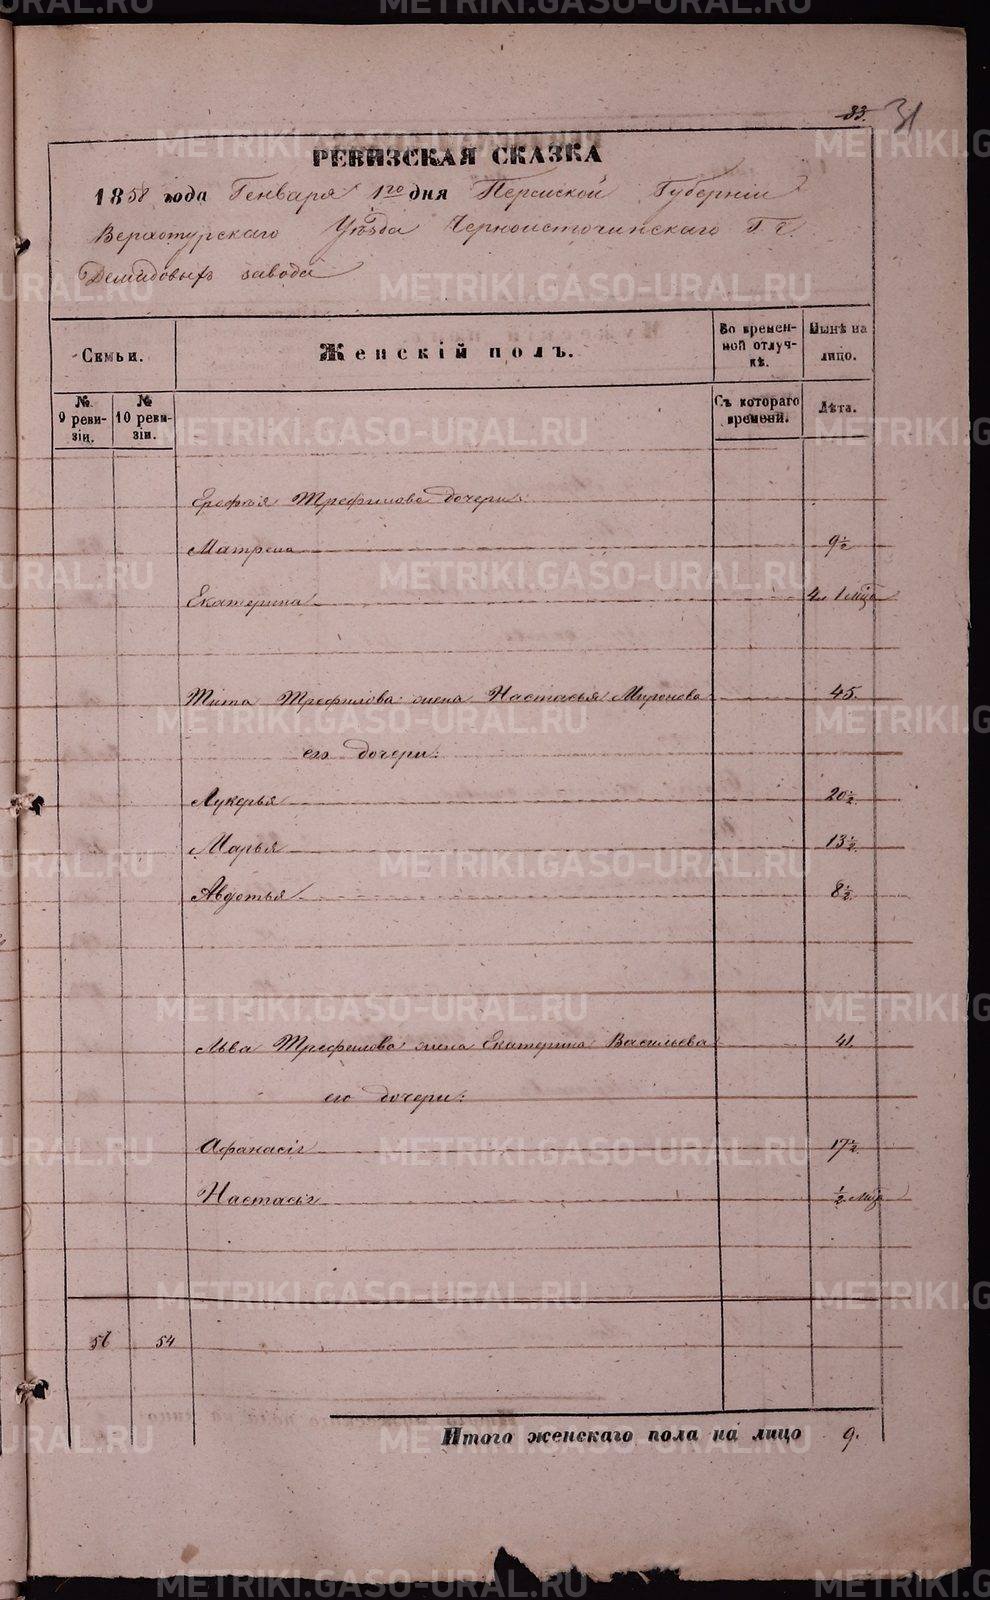 33. 31
РЕВИЗСКАЯ СКАЗКА
1858 года Генваря 1го дня Пермской Губерніи
Верхотурскаго Уѣзда Черноисточинскаго Г. г.
Демидовыхъ завода
Семьи. Женскій полъ. Во временной отлучкѣ. Нынѣ на лицо.
№ 9 ревизіи. № 10 ревизіи. Съ котораго времени. Лѣта.
Ерофѣя Трефилова дочери:
Матрена 9½
Екатерина 4. 1 мѣс
Тита Трефилова жена Настасья Миронова 45.
его дочери:
Лукерья 20½.
Марья 13½.
Авдотья 8½.
Льва Трефилова жена Екатерина Васильева 41.
его дочери:
Афанасія 17½.
Настасья ½ мѣс
56 54
Итого женскаго пола на лицо 9.
METRIKI.GASO-URAL.RU